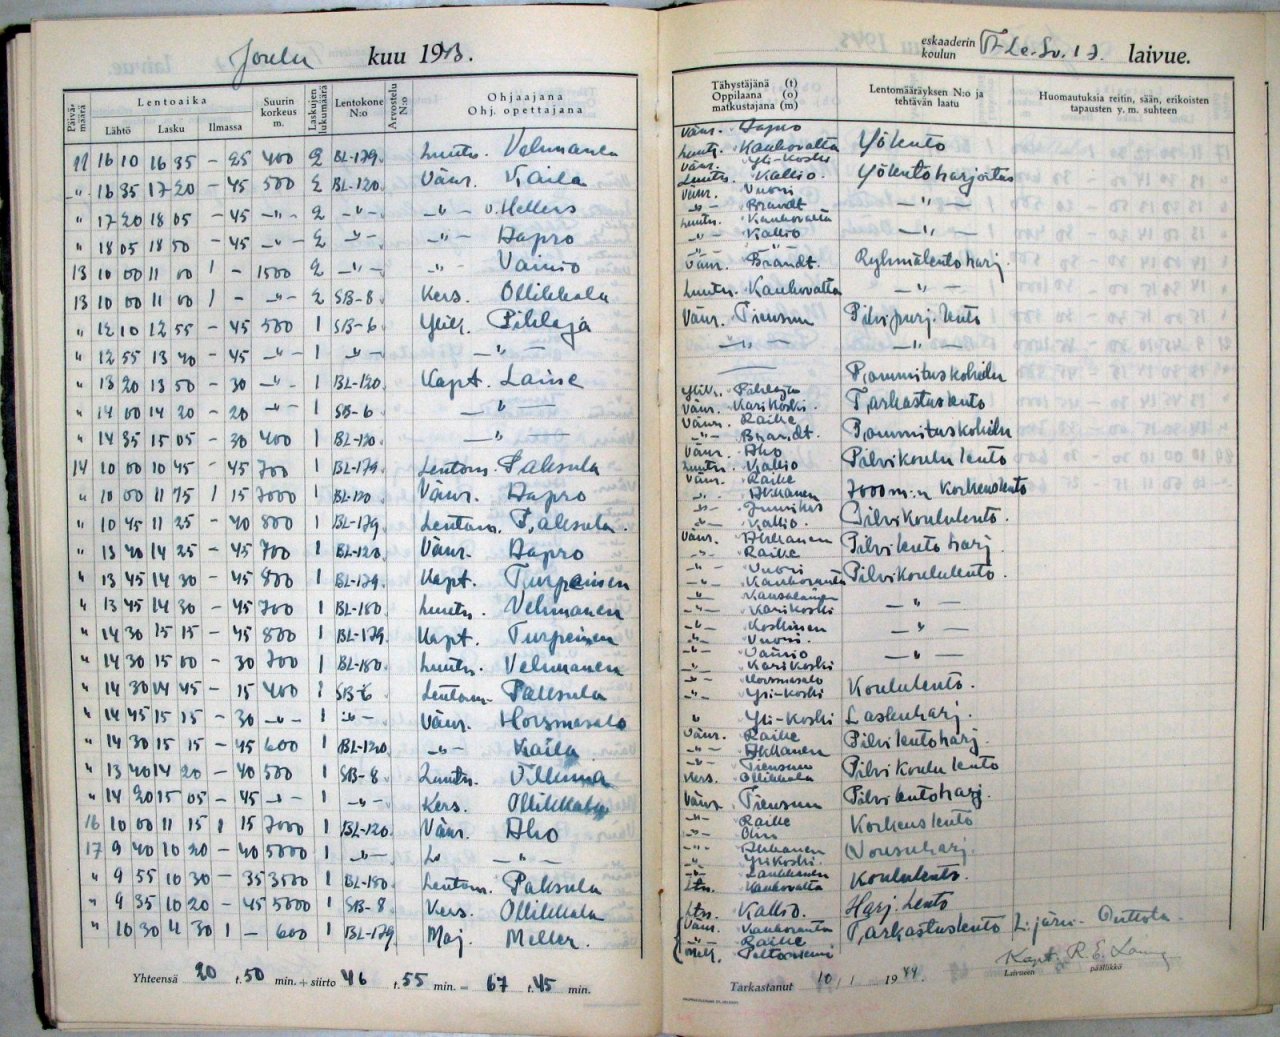 Joulu kuu 1943.
eskaaderin
koulun T-Le-Lv. 17. laivue.
Päivämäärä
Lentoaika
Lähtö Lasku Ilmassa
Suurin korkeus m.
Laskujen lukumäärä
Lentokone N:o
Arvostelu N:o
Ohjaajana
Ohj. opettajana
Tähystäjänä (t)
Oppilaana (o)
matkustajana (m)
Lentomääräyksen N:o ja
tehtävän laatu
Huomautuksia reitin, sään, erikoisten
tapausten y. m. suhteen
11 16 10 16 35 - 25 400 2 BL-179. Luutn. Vehmanen Vänr. Aapro Luutn. Kauhovalta Yölento
-"- 16 35 17 20 - 45 500 2 BL-120. Vänr. Kaila Vänr. Yli-Koski Luutn. Kallio. Yölentoharjoitus
" 17 20 18 05 - 45 -"- 2 -"- -"- v. Hellens Vänr. Vuori -"- Brandt -"-
" 18 05 18 50 - 45 -"- 2 -"- -"- Aapro Luutn. Kauhovalta -"- Kallio -"-
13 10 00 11 00 1 - 1500 2 -"- -"- Vainio Vänr. Brandt. Ryhmälentoharj.
13 10 00 11 00 1 - -"- 2 SB-8. Kers. Ollikkala Luutn. Kauhovalta -"-
" 12 10 12 55 - 45 500 1 SB-6. Ylik. Pihlaja Vänr. Tiensuu
" 12 55 13 40 - 45 -"- 1 -"- -"- -"- -"-
" 13 20 13 50 - 30 -"- 1 BL-120. Kapt. Laine Pommituskoheilu
" 14 00 14 20 - 20 -"- 1 SB-6 -"- Ylik. Pihlaja Vänr. Karikoski. Tarkastuslento
" 14 35 15 05 - 30 400 1 BL-120. -"- Vänr. Raike -"- Brandt. Pommituskoheilu
14 10 00 10 45 - 45 700 1 BL-179. Lentom. Paksula Vänr. Aho Luutn. Kallio Pilvikoululento
" 10 00 11 15 1 15 7000 1 BL-120 Vänr. Aapro Vänr. Raike -"- Akkanen 7000 m:n korkeuslento
" 10 45 11 25 - 40 800 1 BL-179. Lentom. Paksula -"- Kallio. Pilvikoululento.
" 13 40 14 25 - 45 700 1 BL-120. Vänr. Aapro Vänr. Akkanen -"- Raike Pilvilentoharj.
" 13 45 14 30 - 45 800 1 BL-179. Kapt. Turpeinen -"- Vuori Pilvikoululento.
" 13 45 14 30 - 45 700 1 BL-180. Luutn. Vehmanen -"- Karikoski -"-
" 14 30 15 15 - 45 800 1 BL-179. Kapt. Turpeinen -"- Koskinen -"- Vuori. -"-
" 14 30 15 00 - 30 700 1 BL-180. Luutn. Vehmanen -"- Vainio -"- Karikoski -"-
" 14 30 14 45 - 15 400 1 SB-6 Lentom. Paksula -"- Horsmasalo -"- Yli-Koski Koululento.
" 14 45 15 15 - 30 -"- 1 -"- Vänr. Horsmasalo " Yli-Koski Laskuharj.
" 14 30 15 15 - 45 600 1 BL-120 -"- Kaila Vänr. Raike -"- Akkanen Pilvilentoharj.
" 13 40 14 20 - 40 500 1 SB-8 Luutn. Villuma -"- Tiensuu Kers. Ollikkala Pilvikoululento
" 14 20 15 05 - 45 -"- 1 -"- Kers. Ollikkala Vänr. Tiensuu Pilvilentoharj.
16 10 00 11 15 1 15 7000 1 BL-120. Vänr. Aho -"- Raike Korkeuslento
17 9 40 10 20 - 40 5000 1 -"- -"- -"- Akkanen -"- Ylikoski. Nousuharj.
" 9 55 10 30 - 35 3500 1 BL-180 Lentom. Paksula Ltn. Kauhovalta Koululento.
" 9 35 10 20 - 45 5000 1 SB-8 Kers. Ollikkala Ltn. Kallio. Harj. lento
" 10 30 11 30 1 - 600 1 BL-179. Maj. Meller. Vänr. Kauhovalta -"- Raike Peltoniemi Tarkastuslento L.järvi - Onttola -
Yhteensä 20 t. 50 min. + siirto 46 t. 55 min. = 67 t. 45 min.
Tarkastanut 10/1 1944. Kapt. R. E. Laine
Laivueen päällikkö